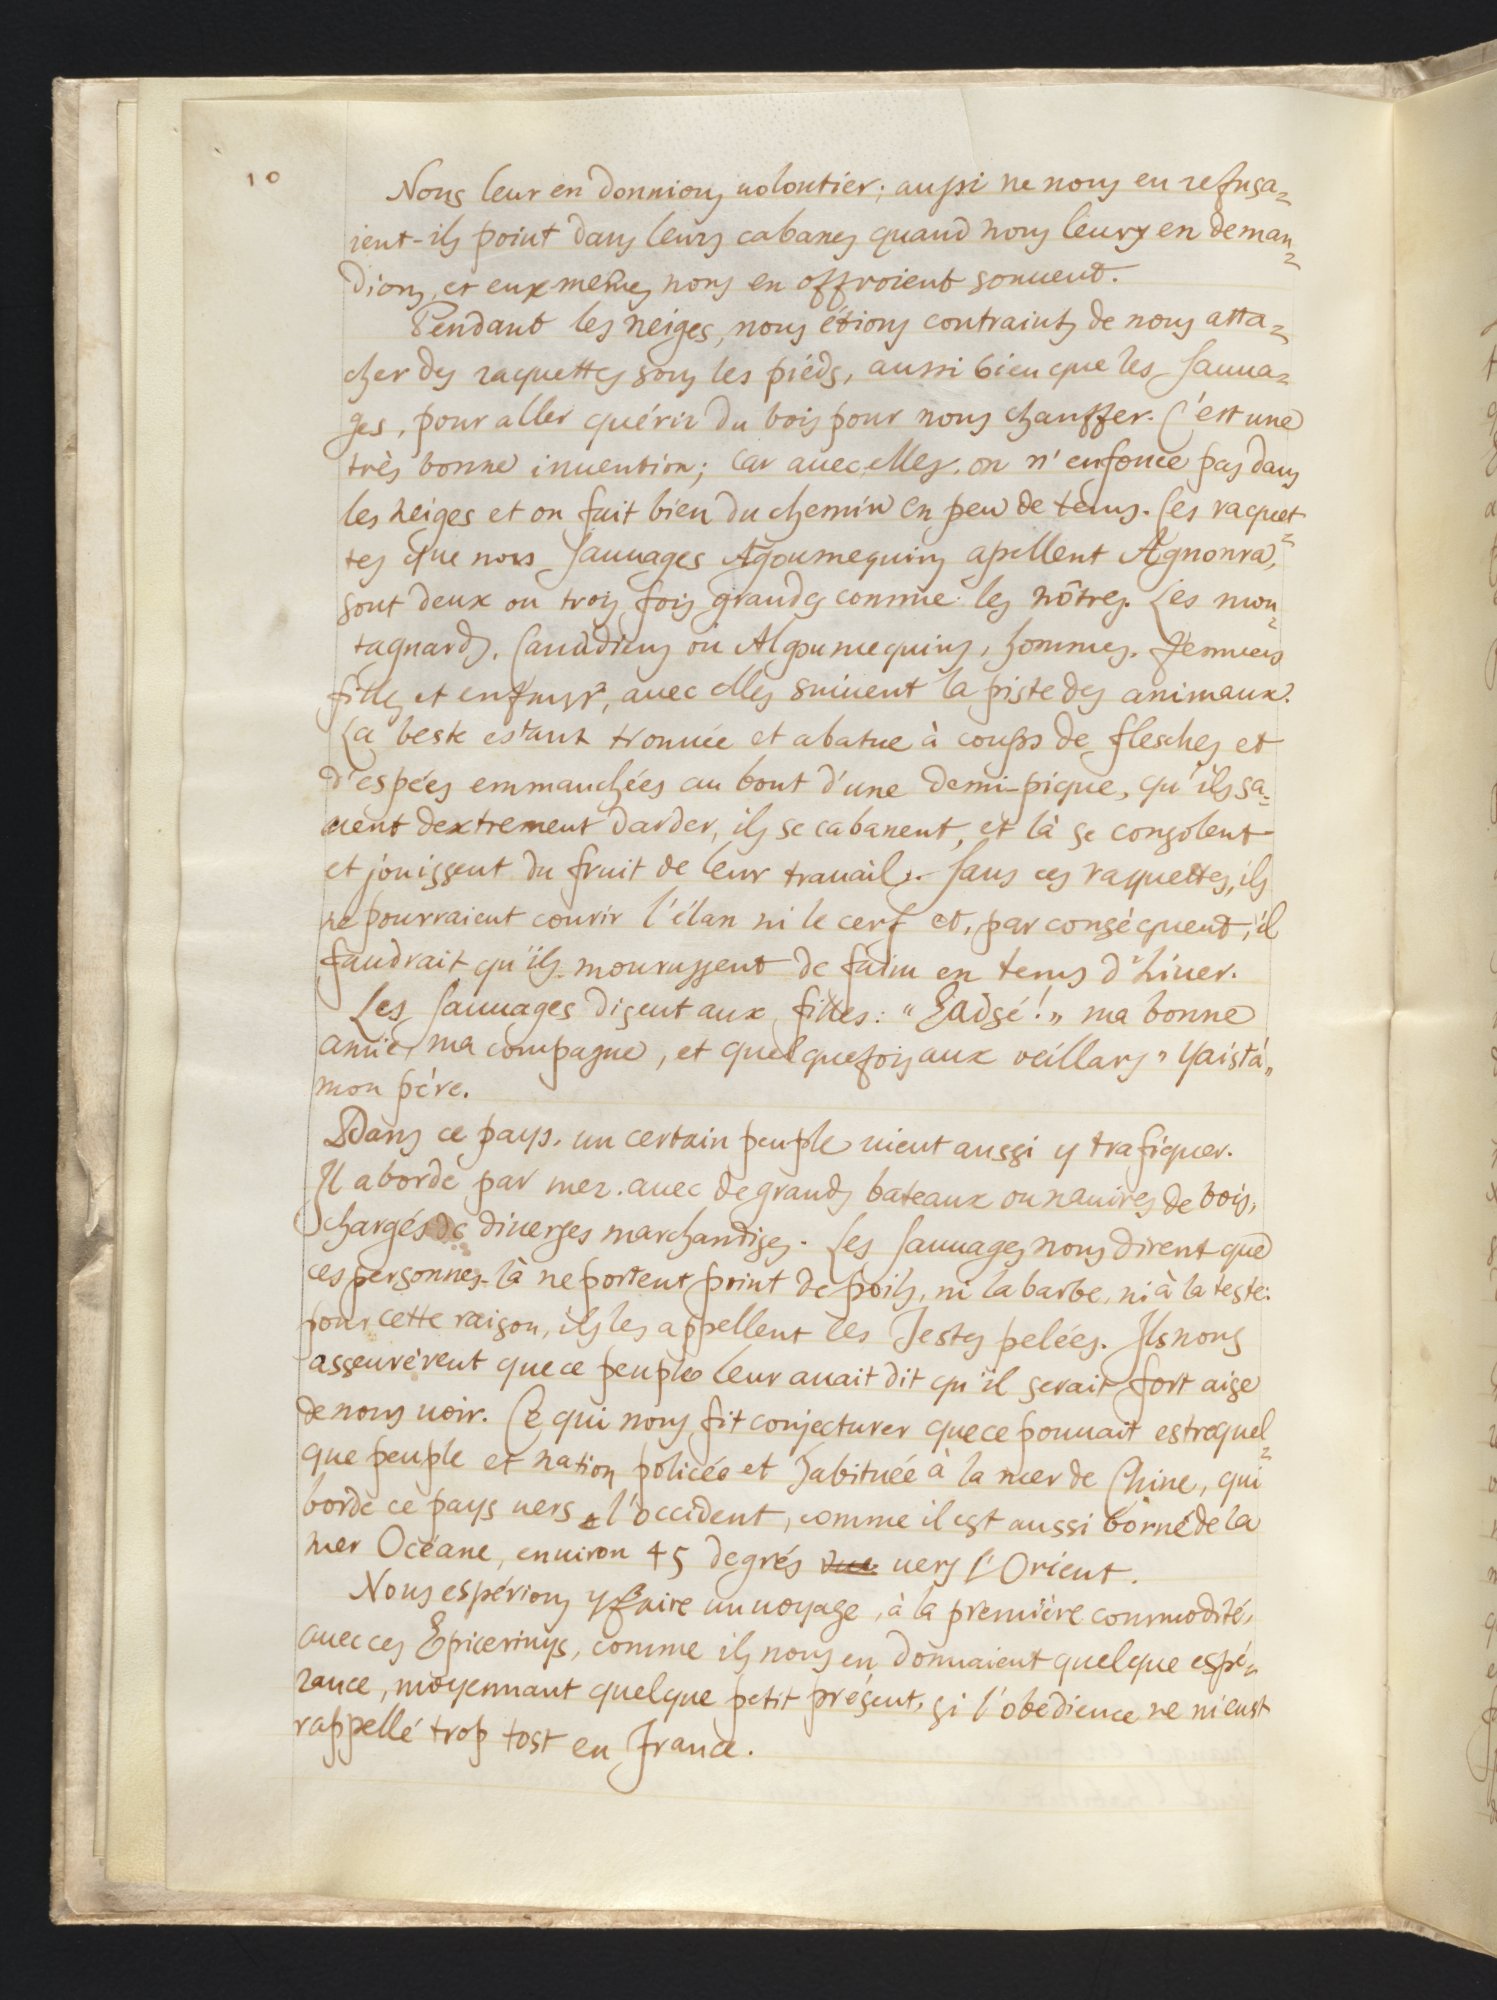 10
Nous leur en donnions uolontier; aussi ne nous en refusa=
ient-ils point dans leurs cabanes quand nous leurs en deman=
dions, et eux mêmes nous en offroient souuent.
Pendant les neiges, nous étions contraints de nous atta=
cher des raquettes sous les piéds, aussi bien que les Sauua=
ges, pour aller quérir du bois pour nous chauffer. C'est une
très bonne inuention; car auec elles, on n'enfonce pas dans
les neiges et on fait bien du chemin en peu de tems. Ces raquet=
tes que nos Sauuages Agoumequins apellent Agnonra,
sont deux ou trois fois grandes comme les nôtres. Les mon=
tagnards, Canadiens ou Algoumequins, hommes, femmes
filles et enfans, auec elles suiuent la piste des animaux.
La beste estant trouuée et abatue à coups de flesches et
d'espées emmanchées au bout d'une demi-pique, qu'ils sa=
uent dextrement darder, ils se cabanent, et là se consolent
et jouissent du fruit de leur trauail. Sans ces raquettes, ils
ne pourraient courir l'élan ni le cerf et, par conséquent, il
faudrait qu'ils mourussent de faim en tems d'hiuer.
Les Sauuages disent aux filles: "Eadsé!" ma bonne
amie, ma compagne, et quelquefois aux veillars " Yaistá"
mon pére.
Dans ce pays, un certain peuple uient aussi y trafiquer.
Il aborde par mer, auec de grands bateaux ou nauires de bois,
chargés de diuerses marchandises. Les Sauuages nous dirent que
ces personnes-là ne portent point de poils, ni la barbe, ni à la teste:
pour cette raison, ils les appellent les Testes pelées. Ils nous
asseurèrent que ce peuple leur auait dit qu'il serait fort aise
de nous uoir. Ce qui nous fit conjecturer que ce pouuait estre quel=
que peuple et nation policée et habituée à la mer de Chine, qui
borde ce pays uers l'occident, comme il est aussi borné de la
mer Océane, enuiron 45 degrés uers l'Orient.
Nous espérions y faire un uoyage, à la première commodité,
auec ces Epicerinys, comme ils nous en donnaient quelque espé=
rance, moyennant quelque petit présent, si l'obédience ne m'eust
rappellé trop tost en France.